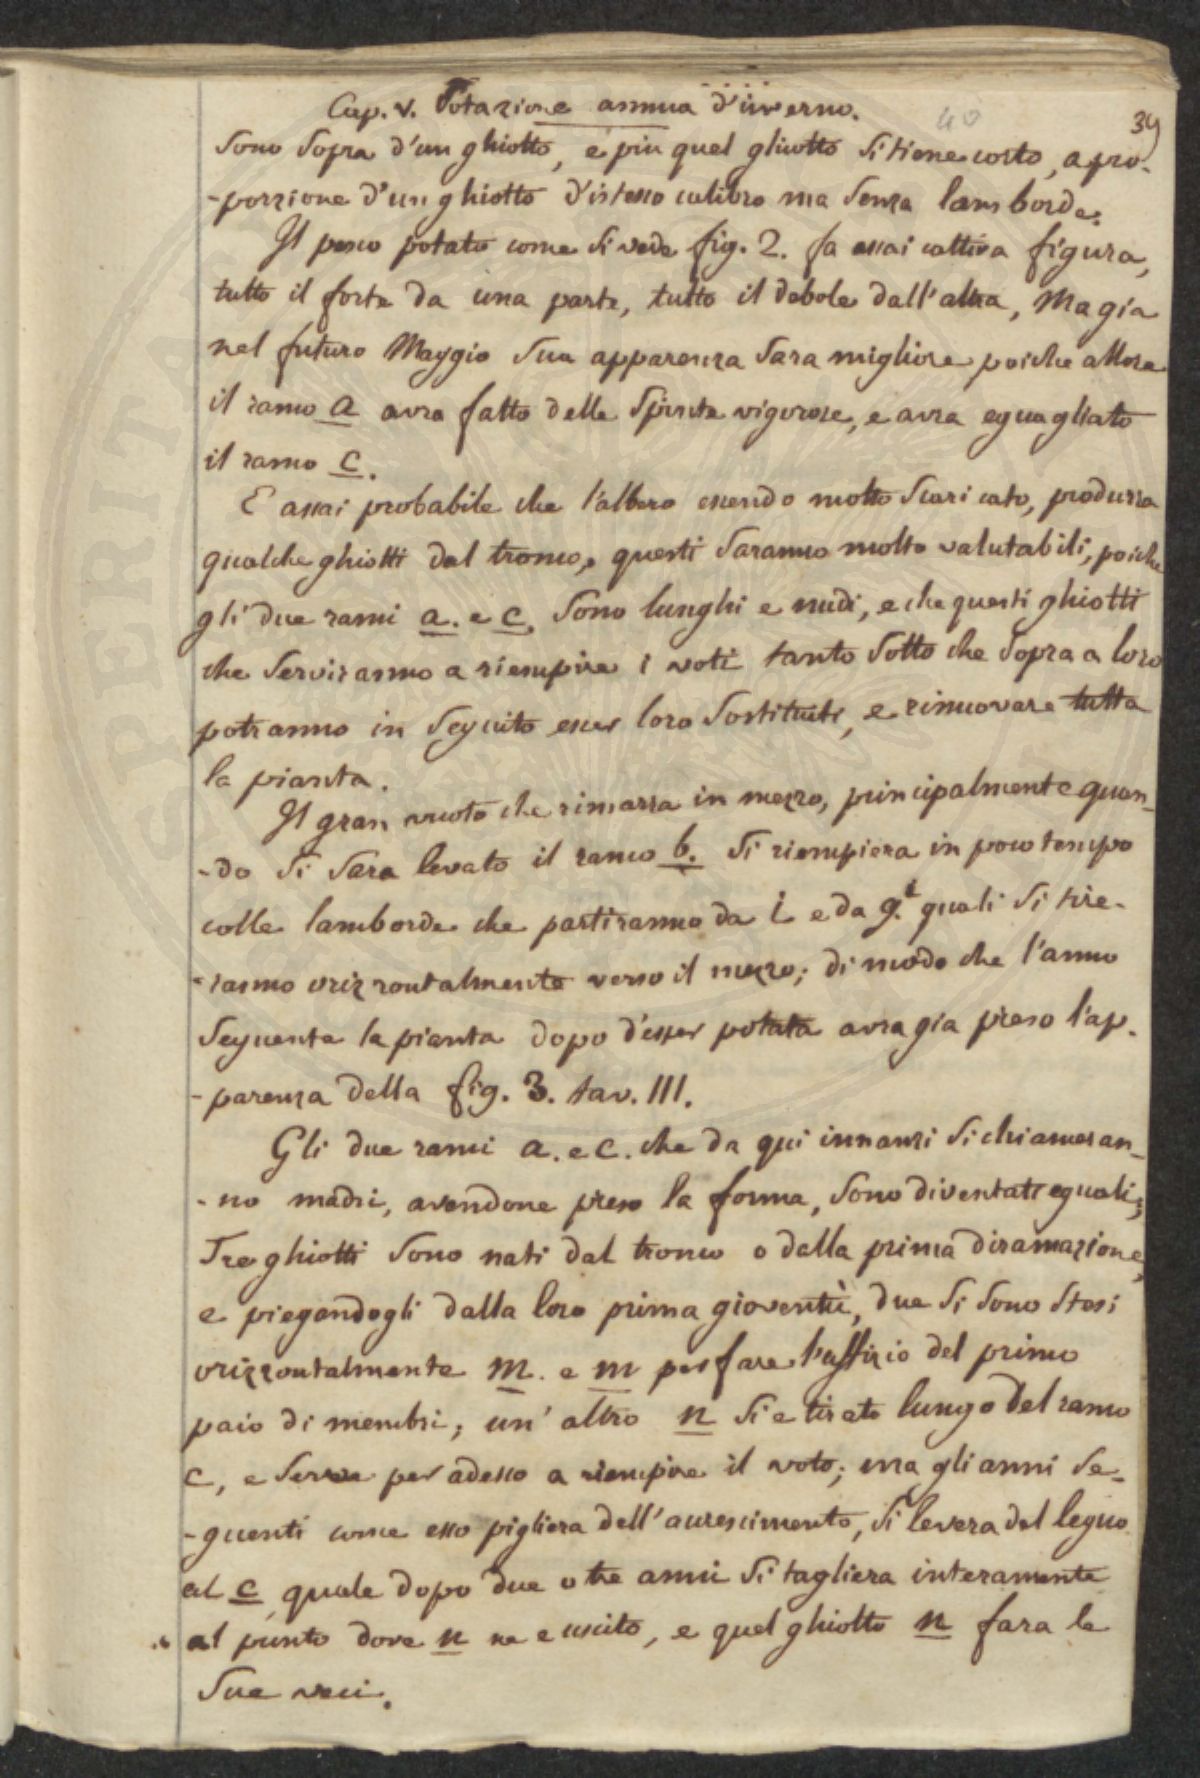 Cap. V. Potazione annua d'inverno.
40
39
sono sopra d'un ghiotto, e piu quel ghiotto si tiene corto, a pro-
-porzione d'un ghiotto d'istesso calibro ma senza lamborde.
Il pesco potato come si vede fig. 2. fa assai cattiva figura,
tutto il forte da una parte, tutto il debole dall'altra, Ma gia
nel futuro Maggio sua apparenza sara migliore poiche allora
il ramo a avra fatto delle spinte vigorose, e avra eguagliato
il ramo c.
E assai probabile che l'albero essendo molto scaricato, produrra
qualche ghiotti dal tronco, questi saranno molto valutabili, poiche
gli due rami a. e c. sono lunghi e nudi, e che questi ghiotti
che serviranno a riempire i voti tanto sotto che sopra a loro
potranno in seguito esser loro sostituti, e rinnovare tutta
la pianta.
Il gran vuoto che rimarra in mezzo, principalmente quan-
-do si sara levato il ramo b. si riempiera in poco tempo
colle lamborde che partiranno da i e da g. i quali si tire-
-ranno orizzontalmente verso il mezzo; di modo che l'anno
seguente la pianta dopo d'esser potata avra gia preso l'ap-
-parenza della fig. 3. tav. III.
Gli due rami a. e c. che da qui innanzi si chiameran-
-no madri, avendone preso la forma, sono diventati eguali;
Tre ghiotti sono nati dal tronco o dalla prima diramazione,
e piegandogli dalla loro prima gioventù, due si sono stesi
orizzontalmente m. e m per fare l'uffizio del primo
paio di membri; un' altro n si e tirato lungo del ramo
c, e serve per adesso a riempire il voto; ma gli anni se-
-guenti come esso pigliera dell'accrescimento, si levera del legno
al c quale dopo due o tre anni si tagliera interamente
al punto dove n ne e uscito, e quel ghiotto n fara le
sue veci.